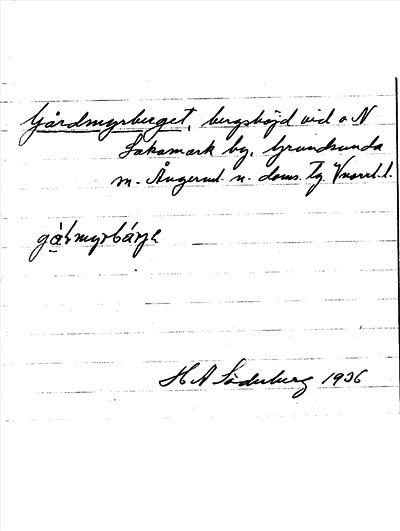 Gårdmyrberget, bergshöjd vid o N
Saksmark by, Grundsunda
sn. Ångerml. n. doms. tg. Vnorrl. l.
H A Söderberg 1936